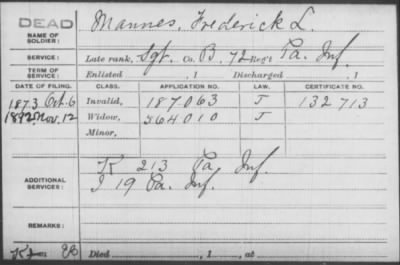 DEAD
NAME OF SOLDIER: Mannes, Frederick L.
SERVICE: Late rank, Sgt. Co. B, 72 Reg't Pa. Inf.
TERM OF SERVICE: Enlisted , 1 Discharged , 1
DATE OF FILING. CLASS. APPLICATION NO. LAW. CERTIFICATE NO.
1873 Oct. 6 Invalid, 187063 J 132713
1892. Nov. 12 Widow, 564010 J
Minor,
ADDITIONAL SERVICES: K 213 Pa. Inf.
I 19 Pa. Inf.
REMARKS:
Died , 1 , at